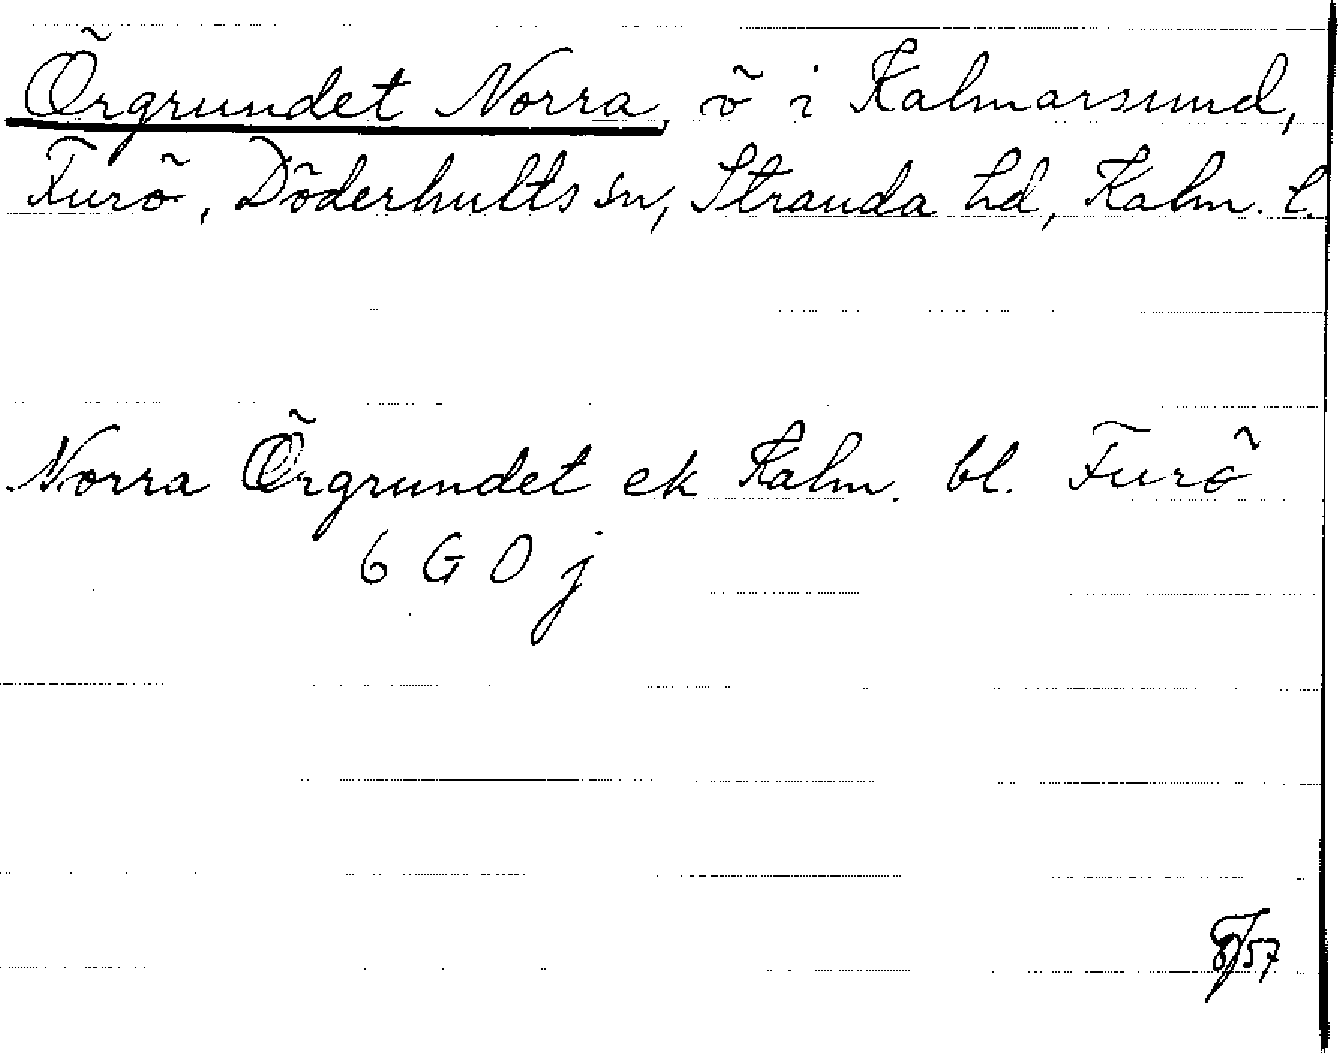 Örgrundet Norra, ö i Kalmarsund,
Furö, Döderhults sn, Stranda hd, Kalm. l.
Norra Örgrundet ek Kalm. bl. Furö
6 G 0 j
/57